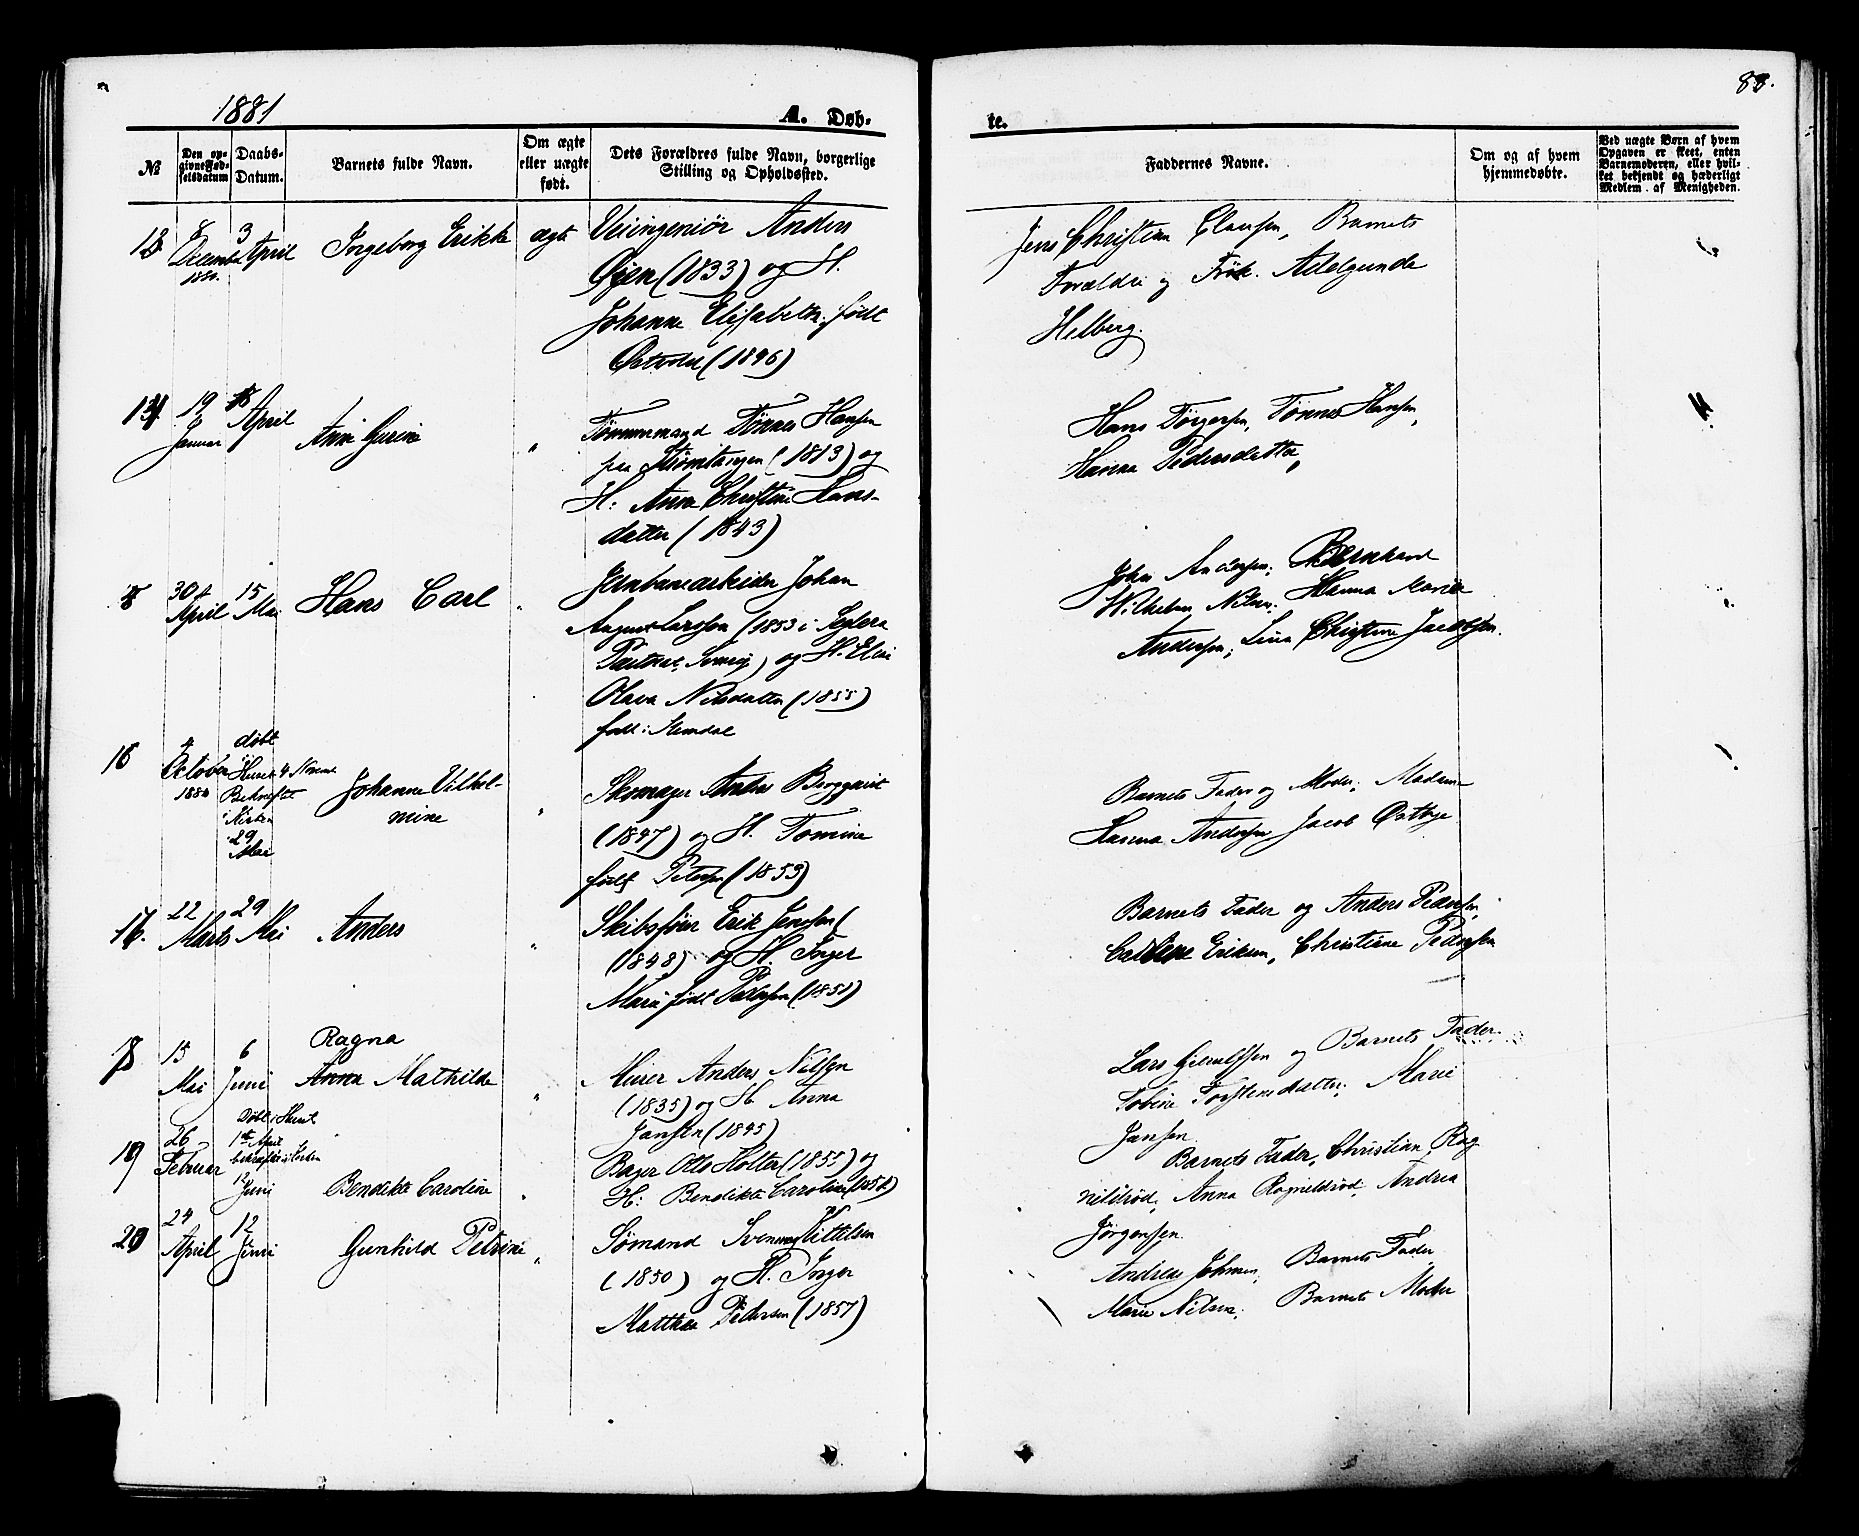 1881
A. Døb-
te.
88.
№
Den op-
givne Fød-
selsdatum
Daabs-
Datum.
Barnets fulde Navn.
Om ægte
eller uægte
født.
Dets Forældres fulde Navn, borgerlige
Stilling og Opholdssted.
Faddernes Navne.
Om og af hvem
hjemmedøbte.
Ved uægte Børn af hvem
Opgaven er skeet, enten
Barnemoderen, eller hvil-
ket bekjendt og hæderligt
Medlem af Menigheden.
8
December
1880.
3
April
Ingeborg Erikke
ægte
Veiingeniör Anders
Öien (1833) og H.
Johanne Elisabeth, født
(1846)
Jens Christian Clausen, Barnets
Forældre og Frök. Adelgunde
Helberg.
14
19
Januar
18
April
Anne Gurine
"
Tømmermand Tönnes Hansen
paa Strömtangen (1813) og
H: Anna Christine Hans-
datter (1843)
Hans Törgersen, Tönnes Hansen,
Hanna Pedersdatter,
30
April
15
Mai
Hans Carl
"
Jernbanearbeider Johan
August Larsson (1853 i
og H. Elvi
Olava Nilsdatter (1855)
født i
John Andersen; Bernhard
Wilhelm Nilsen. Hanna Marie
Andersen; Lina Christine Jacobsen.
16
4
October
1880
døbt
Huset 4 Novem.
Bekræftet
i Kirken
29
Mai
Johanne Vilhel-
mine
"
Skomager Anders Bergqvist
(1847) og H. Tomine
født Petersen (1853)
Barnets Fader og Moder, Madame
Hanna Andersen Jacob Østbye
17.
22
Marts
29
Mai
Anders
"
Skibsfører Erik Jensen (
(1848) og H. Inger
Marie født Pedersen (1851)
Barnets Fader og Anders Pedersen,
Eriksen, Christine Pedersen
18
15
Mai
6
Juni
Ragna
Anna Mathilde
"
Murer Anders Nilsen
(1835) og H. Anna
Jansen (1845)
Lars Gjerulfsen og Barnets Fader.
Tobine Torstensdatter, Marie
Jansen.
19
26
Februar
Døbt i Huset
1ste April
bekræftet i Kirken
12
Juni
Bendikte Caroline
"
Bager Otto Holter (1855) og
H: Bendikte Caroline
Barnets Fader, Christian Rag
nildröd, Anna Ragnildröd, Andrea
Jörgensen
20
24
April
12
Juni
Gunhild Petrine
"
Sömand Svennung Kittilsen
(1850) og H. Inger
Matthea Pedersen (1857)
Andreas Johnsen, Barnets Fader,
Marie Nilsen, Barnets Moder